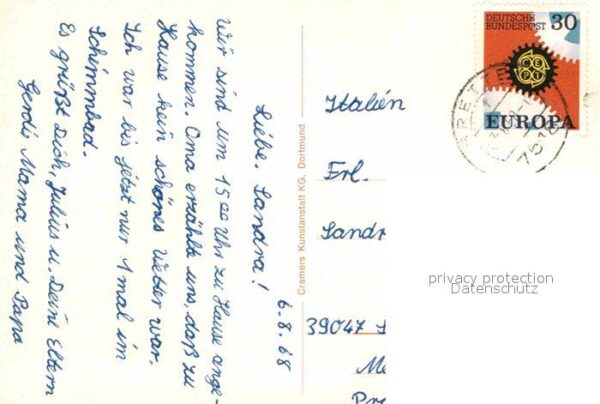 6.8.68
Liebe Sandra!
Wir sind um 15 00 Uhr zu Hause ange-
kommen. Oma erzählte uns, daß zu
Hause kein schönes Wetter war.
Ich war bis jetzt nur 1 mal im
Schimmbad.
Es grüßt Dich, Julius u. Deine Eltern
Gerdi Mama und Papa
Cramers Kunstanstalt KG, Dortmund
DEUTSCHE
BUNDESPOST 30
CEPT
EUROPA
Italien
Frl.
Sandr
39047
privacy protection
Datenschutz